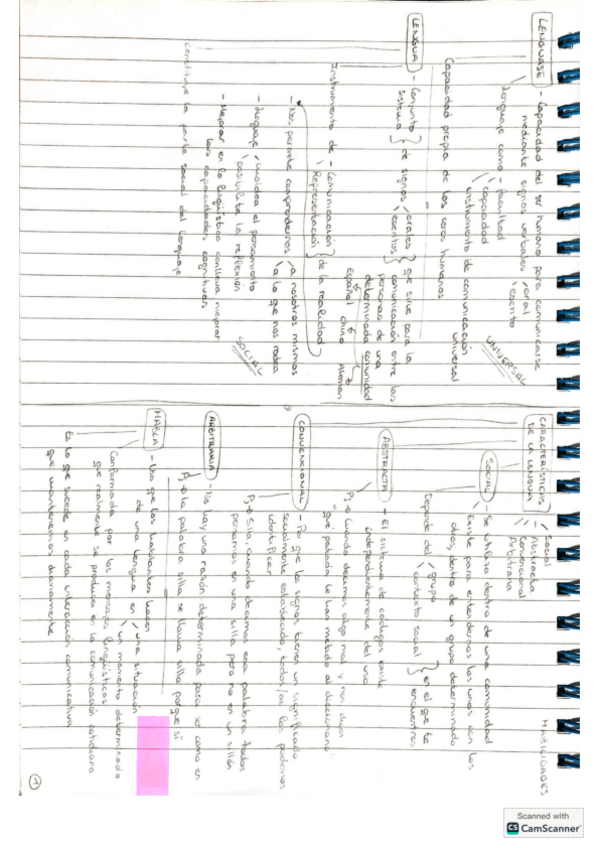 HABILIDADES
LENGUAJE - Capacidad del ser humano para comunicarse
mediante signos verbales oral
escrito
Lenguaje como - facultad
capacidad
instrumento de comunicación
universal
UNIVERSAL
Capacidad propia de los seres humanos
LENGUA - Conjunto
sistema
de signos orales
escritos
que sirve para la
comunicación entre las
personas de una
determinada comunidad
español chino Alemán
Instrumento de - Comunicación
Representación
de la realidad
- Nos permite comprendernos a nosotros mismos
a lo que nos rodea
- Lenguaje moldea el pensamiento
posibilita la reflexión
- Mejorar en lo lingüístico conlleva mejorar
las capacidades cognitivas
SOCIAL
Constituye la parte social del lenguaje
CARACTERÍSTICAS
DE LA LENGUA
Social
Abstracta
Convencional
Arbitraria
SOCIAL - Se utiliza dentro de una comunidad
existe para entendernos los unos con los
otros, dentro de un grupo determinado
Depende del grupo
contexto social
en el que te
encuentres
ABSTRACTA - El sistema de códigos existe
independientemente del uso
Pj → Cuando decimos algo mal y nos dicen
"qué patada le has metado al diccionario"
CONVENCIONAL - Por que los signos tienen un significado
socialmente establecido, todos/as los podemos
identificar
Pj → Silla, cuando decimos esa palabra todos
pensamos en una silla pero no en un sillón
ARBITRARIA - No hay una razón determinada para
Pj → la palabra silla se llama silla porque sí
HABLA - Uso que los hablantes hacen
de una lengua en una situación
un momento determinado
Conformada por los mensajes lingüísticos
que realmente se producen en la comunicación cotidiana
Es lo que sucede en cada interacción comunicativa
que mantenemos diariamente
1
Scanned with
CS CamScanner